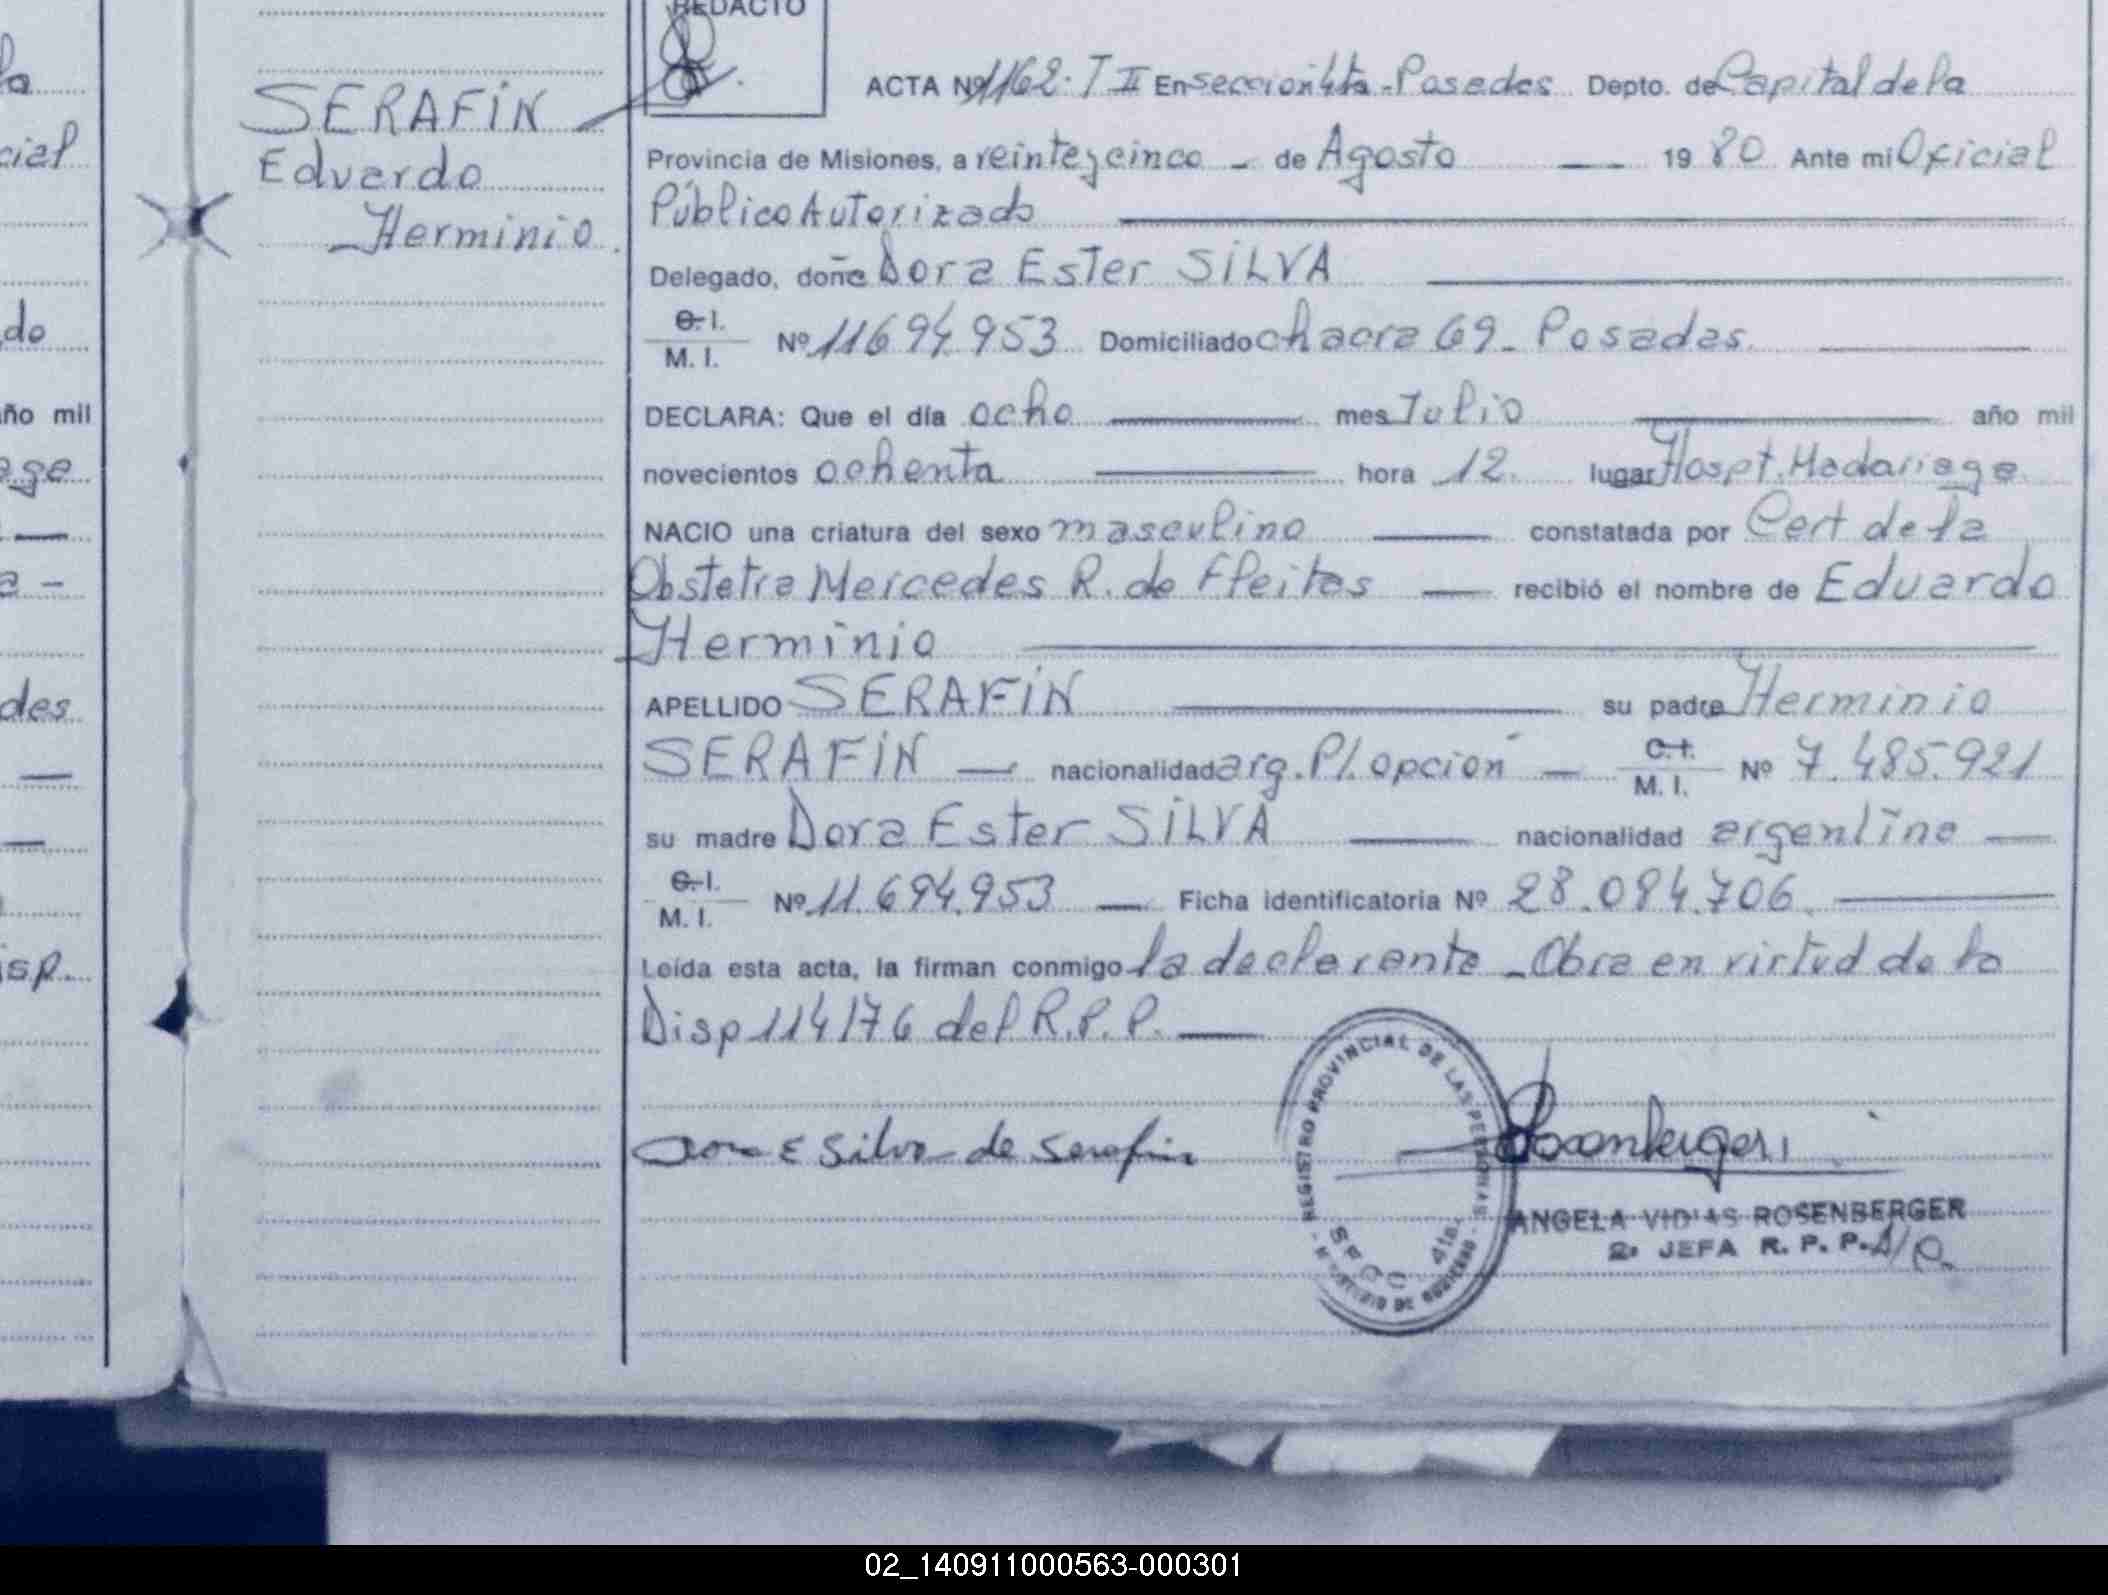 la
cial
do
año mil
age
des
isp.
SERAFIN
Eduardo
Herminio.
REDACTO
ACTA Nº 1162. T II En sección 4ta. Posadas Depto. de Capital de la
Provincia de Misiones, a veinteycinco - de Agosto — 1980 Ante mi Oficial
Público Autorizado
Delegado, doña Dora Ester SILVA
C. I. / M. I. Nº 11694.953 Domiciliado chacra 69 - Posadas.
DECLARA: Que el día ocho mes Julio año mil
novecientos ochenta hora 12. lugar Hospt. Madariaga
NACIO una criatura del sexo masculino constatada por Cert de la
Obstetra Mercedes R. de Ffeitas recibió el nombre de Eduardo
Herminio
APELLIDO SERAFIN su padre Herminio
SERAFIN — nacionalidad arg. P/. opción — C. I. / M. I. Nº 7.485.921
su madre Dora Ester SILVA nacionalidad argentina —
C. I. / M. I. Nº 11.694.953 — Ficha identificatoria Nº 28.084.706.
Leída esta acta, la firman conmigo la declarante - Obra en virtud de la
Disp 114/76 del R.P.P. —
Dora E Silva de Serafin
REGISTRO PROVINCIAL DE LAS PERSONAS
SECC. 4ta.
MINISTERIO DE GOBIERNO
ANGELA VIDIAS ROSENBERGER
2a JEFA R. P. P. A/C.
02_140911000563-000301